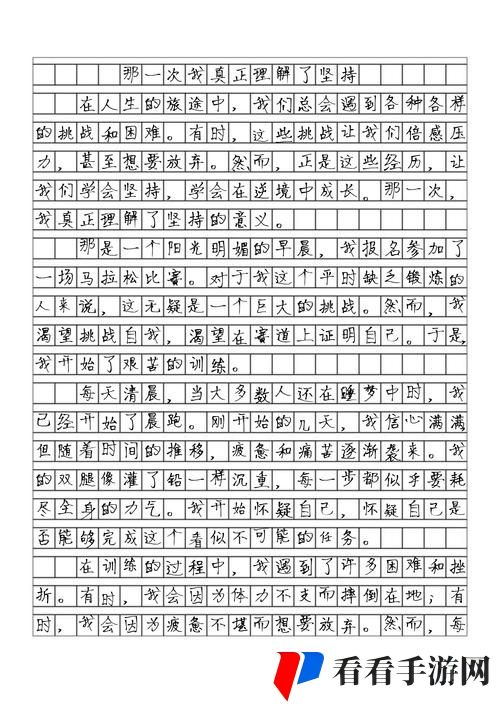 那一次我真正理解了坚持
在人生的旅途中，我们总会遇到各种各样
的挑战和困难。有时，这些挑战让我们倍感压
力，甚至想要放弃。然而，正是这些经历，让
我们学会坚持，学会在逆境中成长。那一次，
我真正理解了坚持的意义。
那是一个阳光明媚的早晨，我报名参加了
一场马拉松比赛。对于我这个平时缺乏锻炼的
人来说，这无疑是一个巨大的挑战。然而，我
渴望挑战自我，渴望在赛道上证明自己。于是，
我开始了艰苦的训练。
每天清晨，当大多数人还在睡梦中时，我
已经开始了晨跑。刚开始的几天，我信心满满，
但随着时间的推移，疲惫和痛苦逐渐袭来。我
的双腿像灌了铅一样沉重，每一步都似乎要耗
尽全身的力气。我开始怀疑自己，怀疑自己是
否能够完成这个看似不可能的任务。
在训练的过程中，我遇到了许多困难和挫
折。有时，我会因为体力不支而摔倒在地；有
时，我会因为疲惫不堪而想要放弃。然而，每
看看手游网